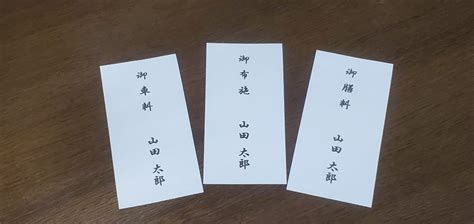 御車料 山田 太郎
御布施 山田 太郎
御膳料 山田 太郎